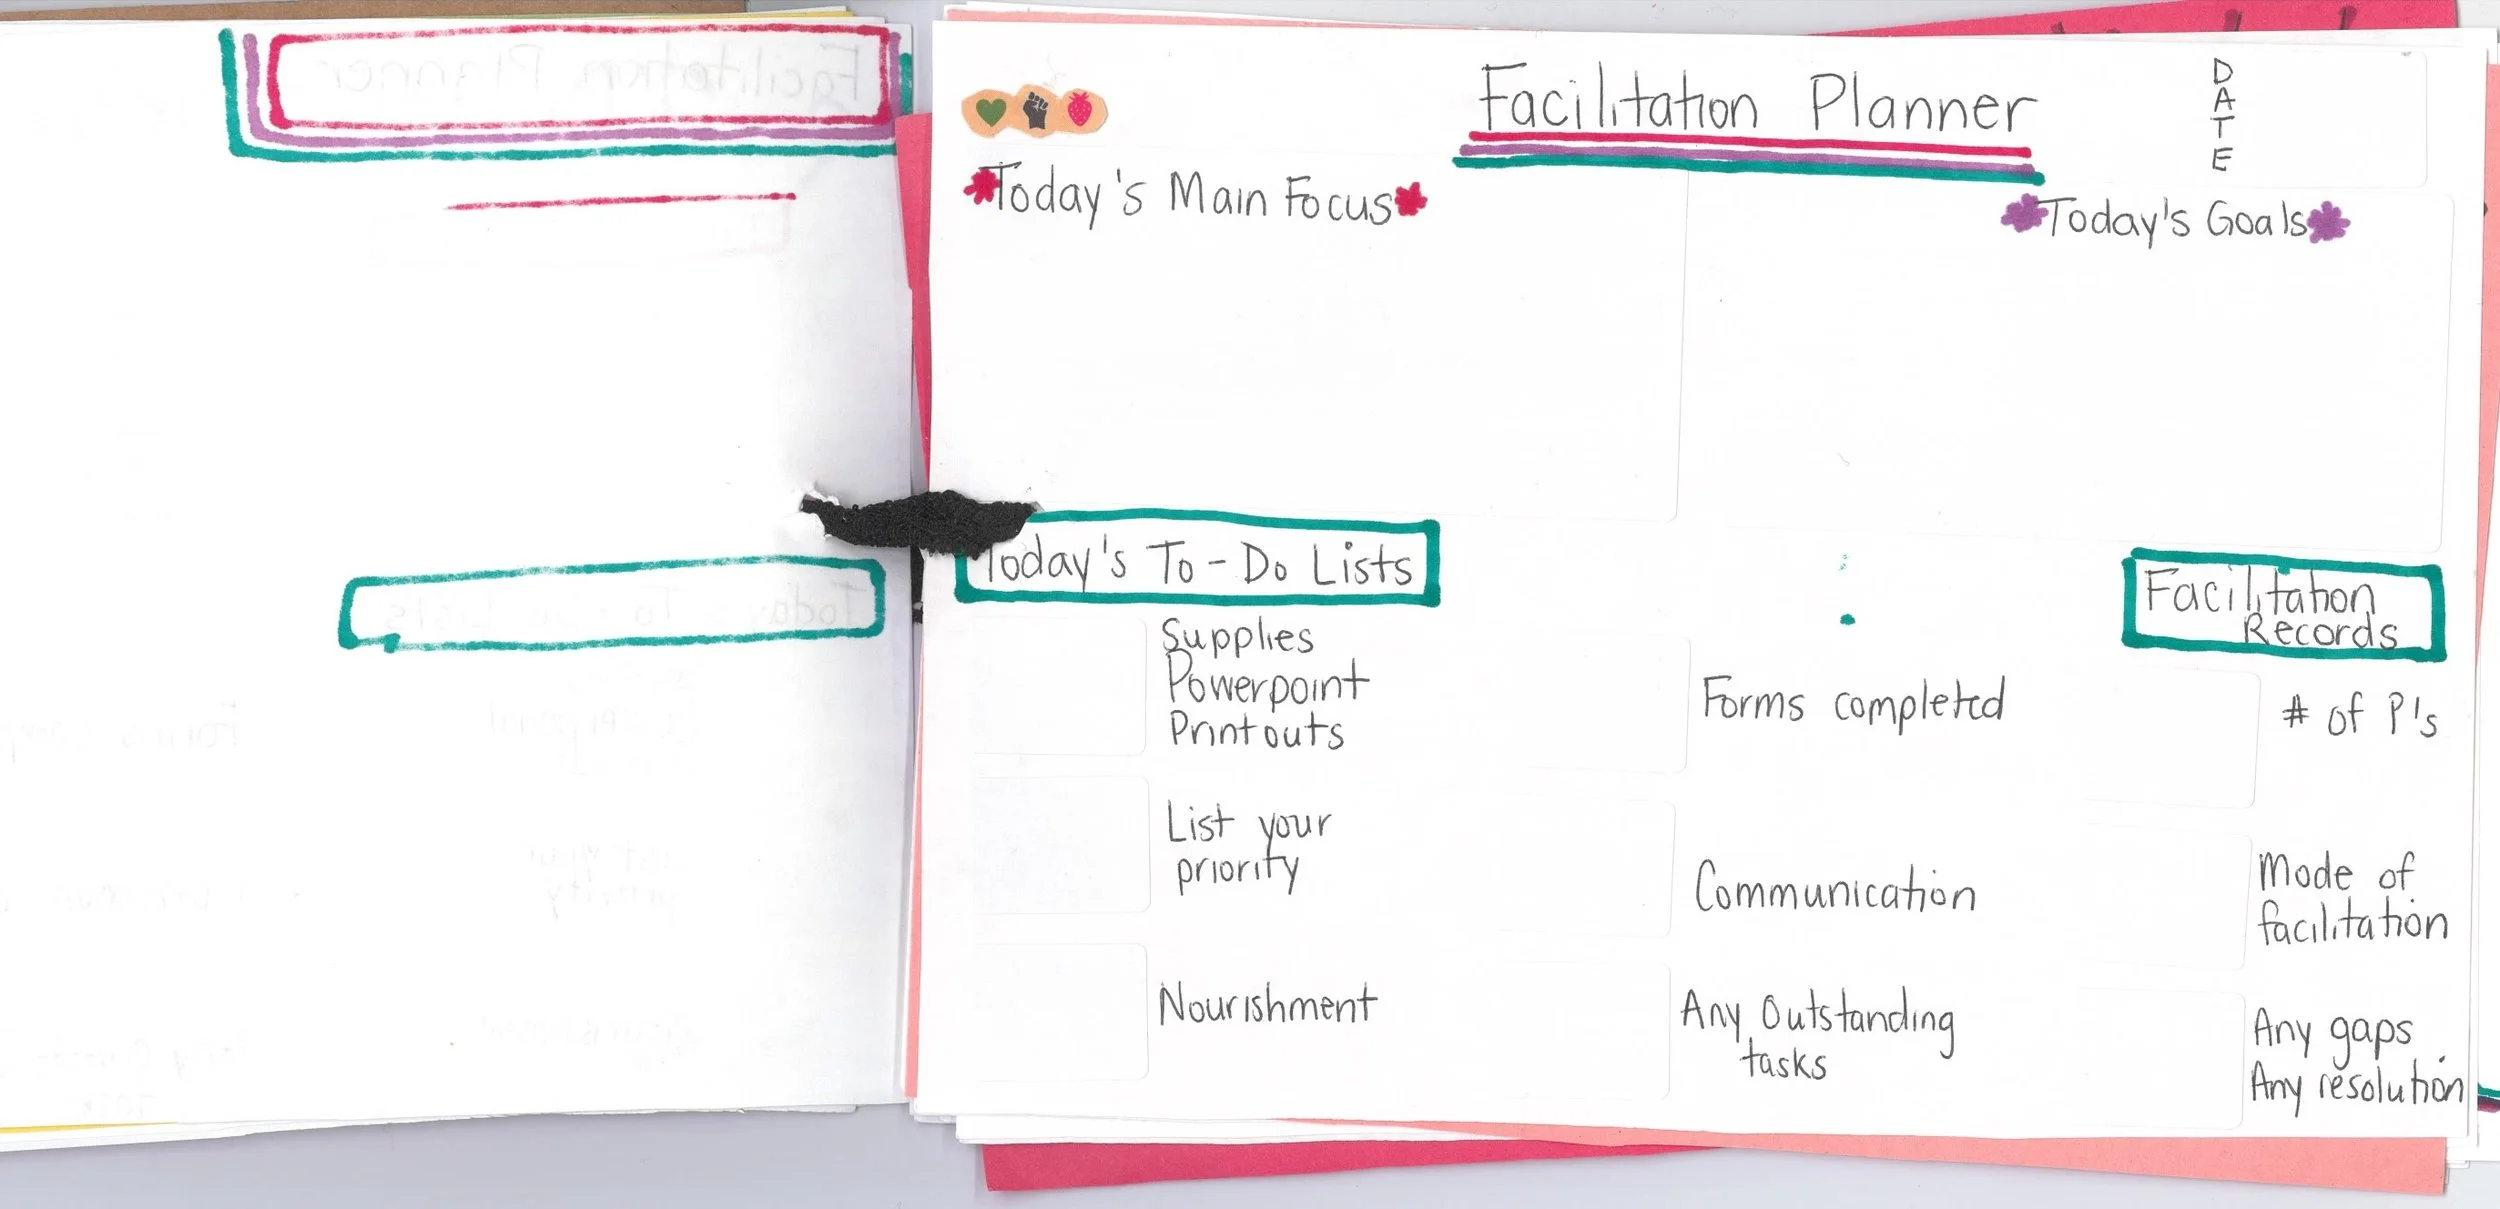 Facilitation Planner
DATE
Today's Main Focus
Today's Goals
Today's To-Do Lists
Supplies
Powerpoint
Printouts
List your
priority
Nourishment
Forms completed
Communication
Any Outstanding
tasks
Facilitation
Records
# of P's
Mode of
facilitation
Any gaps
Any resolution